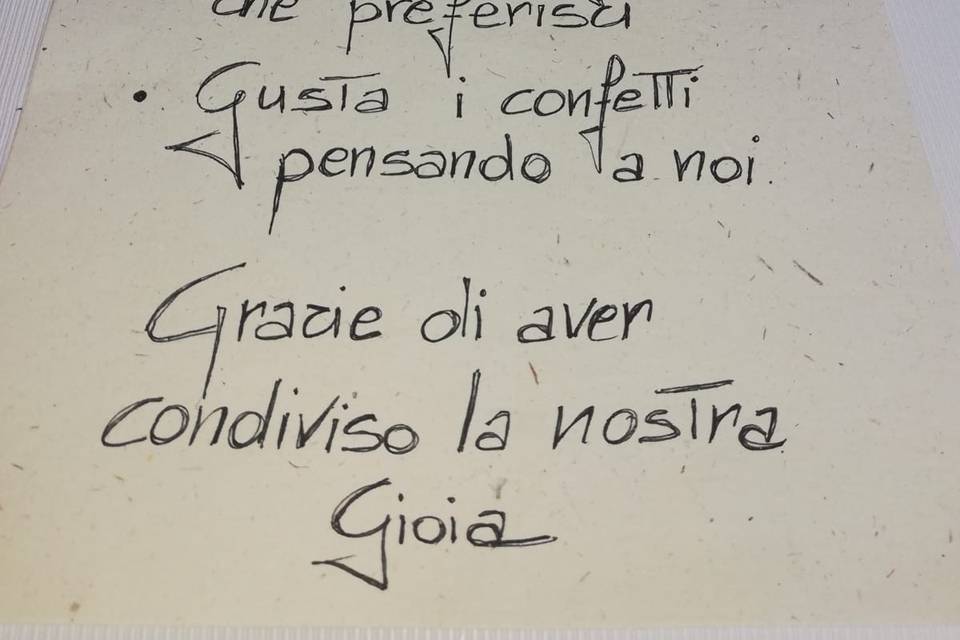 che preferisci
• Gusta i confetti
pensando a noi.
Grazie di aver
condiviso la nostra
Gioia